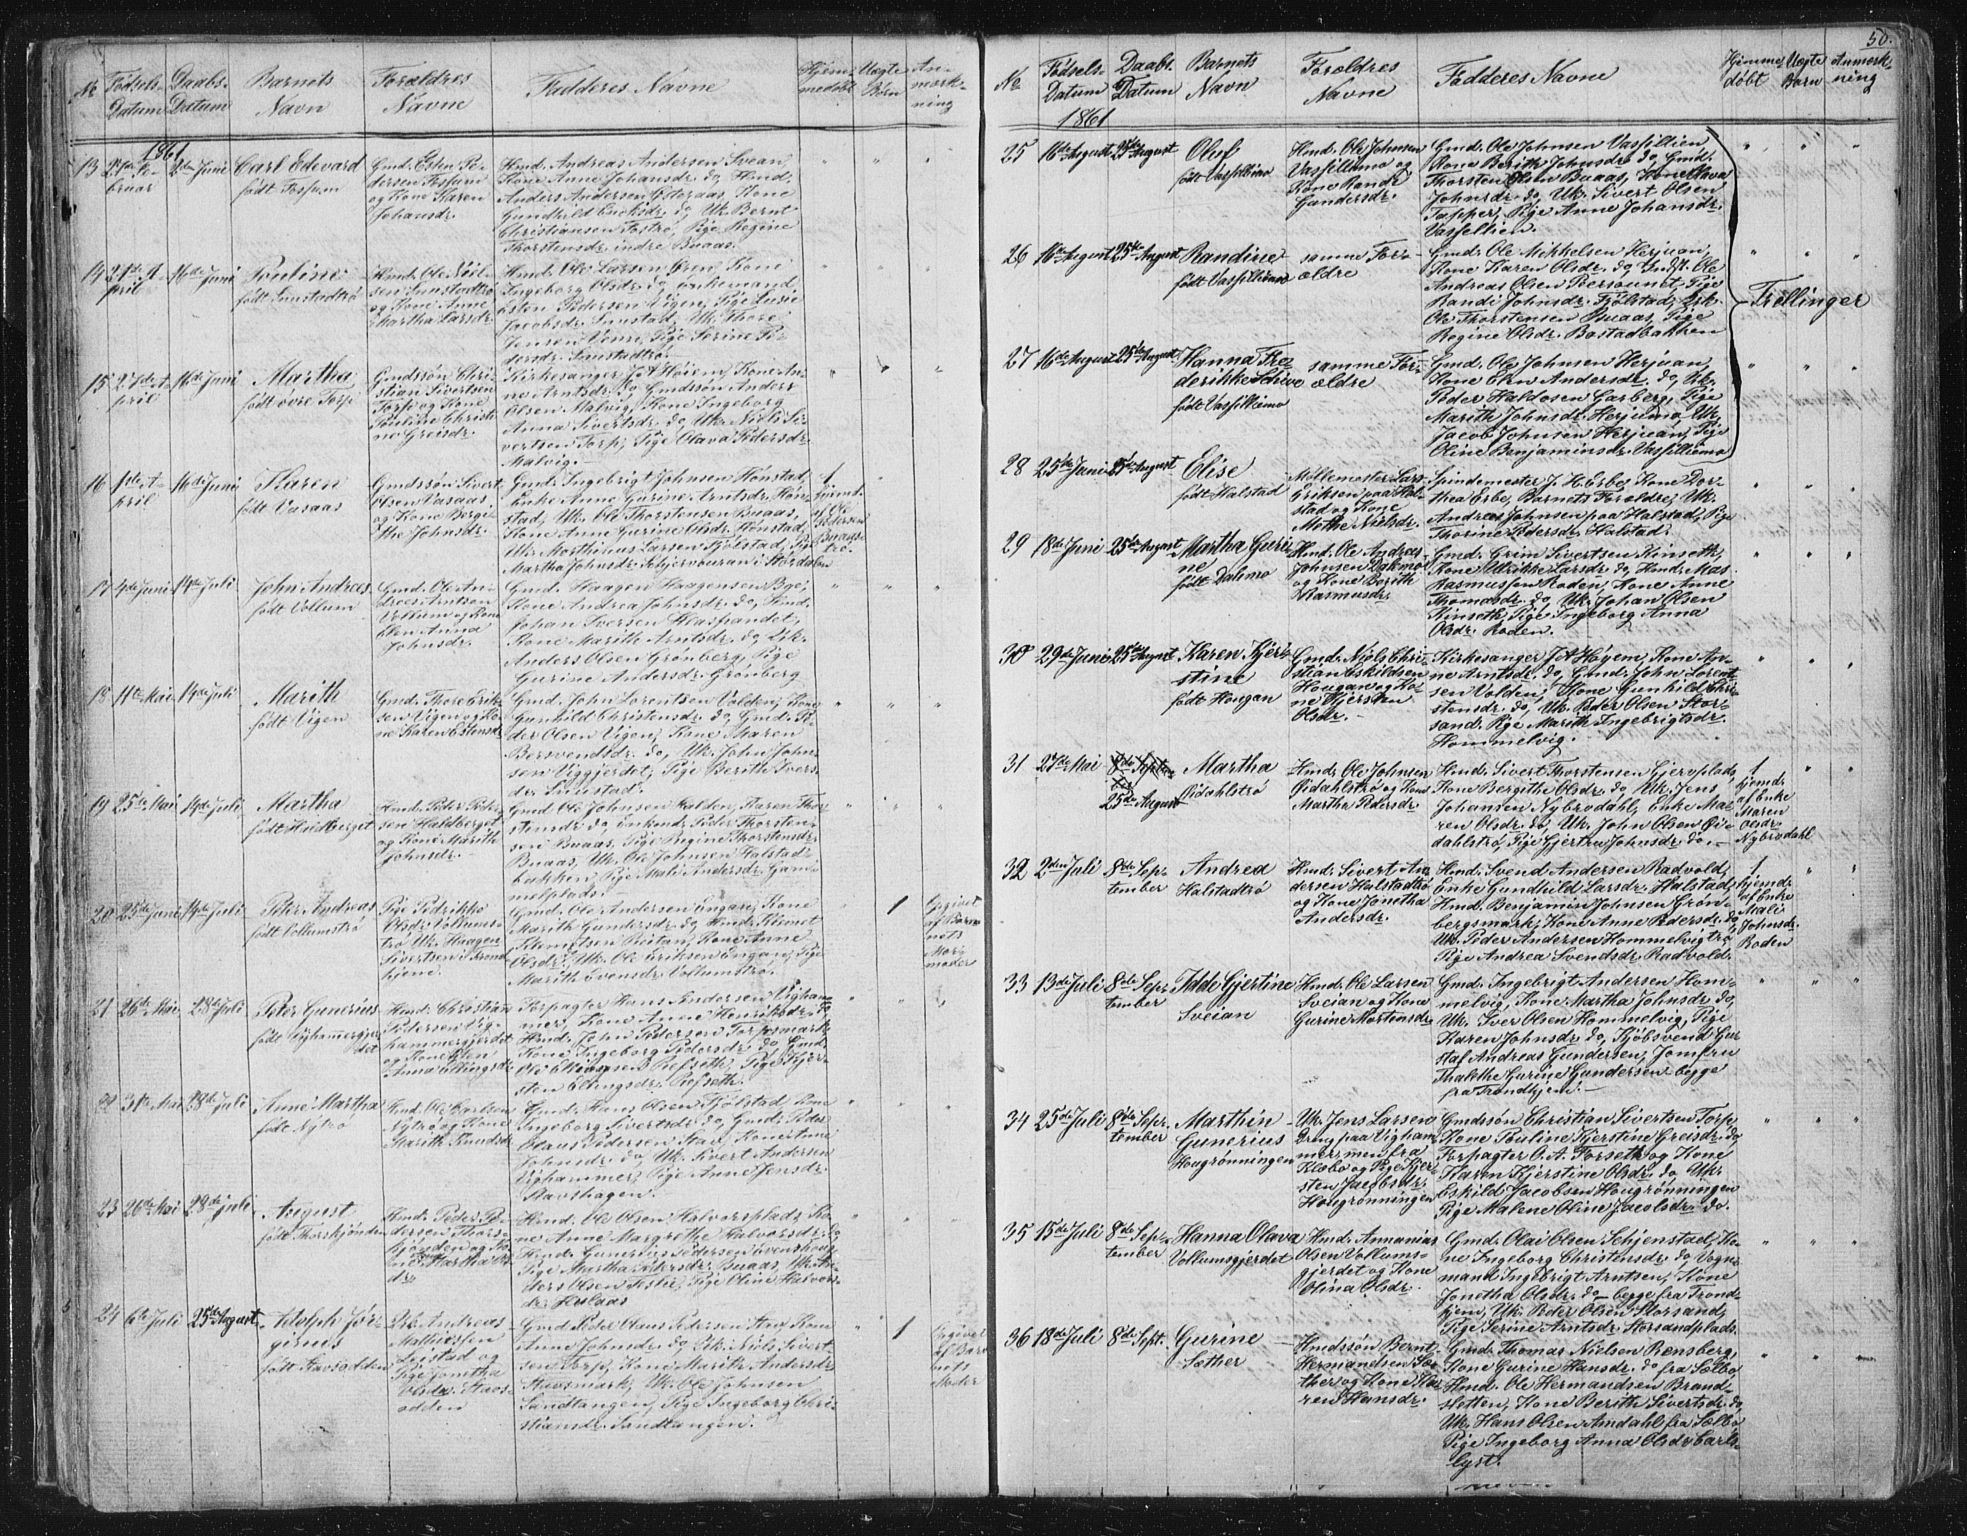 50.
No Fødsels- Datum
Daabs- Datum
Barnets Navn
Forældres Navne
Fadderes Navne
Hjemmedøbt
Uægte Børn
Anmærkning
1861
13 2 Juni Carl Edevard
født Fossum
Gmd. Esten Pe-
dersen Fossum
og Kone Karen
Johansdr.
Hmd. Andreas Andersen Svean,
Kone Anne Johansdr. do, Hmd.
Anders Andersen Østeraas, Kone
Gundhild Enoksdr. do, Uk. Bernt
Christiansen Fostrø, Pige Regine
Thorstensdr. indre Buaas.
14 21de A-
pril 16de Juni Pauline
født Smistadtrø
Hmd. Ole Niel-
sen Smistadtrø
og Kone Anne
Martha Larsdr.
Hmd. Ole Larsen Øren, Kone
Ingeborg Olsdr. do, Enkemand
Esten Pedersen Vigen, Pige Lusie
Jacobsdr. Smistad, Uk. Thore
Jensen Venn, Pige Serine Pe-
dersdr. Smistadtrø.
15 27de A-
pril 16de Juni Martha
født øvre Torp
Gmdssøn Chri-
stian Sivertsen
Torp og Kone
Pauline Christi-
ne Greisdr.
Kirkesanger J A Høiem, Kone An-
ne Arntsdr. do, Gmdssøn Anders
Olsen Malvig, Kone Ingeborg
Anna Sivertsdr. do, Uk. Niels Si-
vertsen Torp, Pige Olava Pedersdr.
Malvig.
16 1ste A-
pril 16de Juni Karen
født Vasaas
Gmdssøn Sivert
Olsen Vasaas
og Kone Bergi-
the Johnsdr.
Gmd. Ingebrigt Johnsen Hønstad,
Enke Anne Gurine Arntsdr. Høn-
stad, Uk. Ole Thorstensen Buaas,
Kone Anne Gurine Olsdr. Hønstad,
Uk. Morthinus Larsen Fjølstad, Pige
Martha Johnsdr. Schjervouran i Størdalen
1
hjemd.
af Ole
Pedersen
Buaas-
trø.
17 4de Juni 14de Juli John Andreas
født Vollum
Gmd. Ole An-
dreas Arntsen
Vollum og Kone
Ellen Anna
Johnsdr.
Gmd. Haagen Haagensen Bye,
Kone Andrea Johnsdr. do, Hmd.
Johan Iversen Hlasfandet,
Kone Marith Arntsdr. do
Anders Olsen Grønberg, Pige
Gurine Andersdr. Grønberg
18 11te Mai 14de Juli Marith
født Vigen
Gmd. Thore Erik-
sen Vigen og Ko-
ne Karen Estensdr.
Gmd. John Lorentsen Volden, Kone
Gunhild Christensdr. do, Gmd. Pe-
der Olsen Vigen, Kone Karen
Bersvendsdr. do, Uk. John John-
sen Viggjerdet, Pige Berith Ivers-
dr. Smistad.
19 25de Mai 14de Juli Martha
født Huidberget
Hmd. Peder Peder-
sen Huidberget
og Kone Marith
Johnsdr.
Gmd Ole Johnsen Halden, Karen Thor-
stensdr. do, Enkemd. Peder Thorsten-
sen Buaas, Pige Regine Thorstensdr.
Buaas, Uk. Ole Johnsen Halstad-
bakken, Pige Mali Andersdr. Gam-
melplads.
20 25de Juni 14de Juli Peter Andreas
født Vollumstrø
Pige Fedrikke
Olsdr. Vollums-
trø Uk. Haagen
Sivertsen i Trond-
hjem.
Gmd. Ole Andersen Engan, Kone
Marith Gundersdr. do, Hmd. Klimet
Klemetsen Reitan, Kone Anne
Olsdr. do, Uk. Ole Eriksen Engan, Pige
Marith Svensdr. Vollumstrø.
1
Opgivet
af Bar-
nets
Mor-
moder
21 26de Mai 28de Juli Peter Gunerius
født Vighammergjer-
det
Hmd. Christian
Pedersen Vig-
hammergjerdet
og Kone Ellen
Anna Ellingsdr.
Forpagter Hans Andersen Vigham-
mer, Kone Anne Henriksdr. do
Hmd. John Pedersen Torpesmark,
Kone Ingeborg Pedersdr. do, Gmd.
Ole Eliasen Refseth, Pige Kjer-
sten Ellingsdr. Refseth.
22 31te Mai 28de Juli Anne Martha
født Nytrø
Hmd. Ole Carlsen
Nytrø og Kone
Marith Knudsdr.
Gmd. Hans Olsen Fjølstad, Kone
Ingeborg Sivertsdr. do, Gmd. Peder
Olaus Pedersen Stav, Kone Anne
Johnsdr. do, Uk. Sivert Andersen
Vighammer, Pige Anne Jensdr.
Stavshagen.
23 26de Mai 28de Juli August
født Thorskjønden
Hmd. Peder Pe-
dersen Thors-
kjønden og Ko-
ne Martha Ols-
dr.
Hmd. Ole Olsen Halvorsplads, Ko-
ne Anne Margrethe Halvorsdr. do
Hmd. Gunerius Pedersen Svenshoug,
Pige Martha Pedersdr. Buaas, Uk. An-
ders Olsen Festre, Pige Oline Halvors-
dr. Huslaas
24 6te Juli 25de August Adolph Jør-
ginus
født Stavsodden
Uk. Andreas
Mathiessen
Leistad og
Pige Jonetha
Olsdr. Stavs-
odden
Gmd. Peder Olaus Pedersen Stav, Kone
Anne Johnsdr. do, Uk. Niels Sivert-
sen Torp, Kone Marith Andersdr.
Stavsmark, Uk. Ole Johnsen
Sandtangen, Pige Ingeborg Chri-
stiansdr. Sandtangen.
1
Opgivet
af Bar-
nets
Moder
No Fødsels- Datum
Daabs- Datum
Barnets Navn
Forældres Navne
Fadderes Navne
Hjemmedøbt
Uægte Børn
Anmærkning
1861
25 16de August 25de August Oluf
født Vasfilliemo
Hmd. Ole Johnsen
Vasfilliemo og
Kone Randi
Gundersdr.
Gmd. Ole Johnsen Vasfillien,
Kone Berith Johnsdr. do, Gmd.
Thorsten Olsen Buaas, Kone Olava
Johnsdr. do, Uk. Sivert Olsen
Tapper, Pige Anne Johansdr.
Vasfillien.
26 16de August 25de August Randine
født Vasfilliemo
samme For-
ældre
Gmd. Ole Mikkelsen Herjuan,
Kone Karen Olsdr. do, Ole
Andreas Olsen Bersounet, Pige
Randi Johnsdr. Fjølstad,
Ole Thorstensen Buaas, Pige
Regine Olsdr. Bostadbakken
Trellinger
27 16de August 25de August Hanna Fre-
derikke Schive
født Vasfilliemo
samme For-
ældre
Gmd. Ole Johnsen Herjuan,
Kone Elen Andersdr. do, Uk.
Peder Haldosen Garberg, Pige
Marith Johnsdr. Herjumo, Uk.
Jacob Johnsen Herjuan, Pige
Oline Benjaminsdr. Vasfilliemo
28 25de Juni 25de August Elise
født Halstad
Møllemester Lars
Eriksen paa Hal-
stad og Kone
Mothe Nielsdr.
Spindemester J. H. Erbe, Kone Dor-
thea Erbe, Barnets Forældre, Uk.
Andreas Johnsen paa Halstad, Pige
Thorine Pedersdr. Halstad.
29 18de Juni 25de August Martha Guri-
ne
født Dalemo
Hmd. Ole Andreas
Johnsen Dalemo
og Kone Berith
Rasmusdr.
Gmd. Grim Sivertsen Kinseth,
Kone Ulrikke Larsdr. do, Hmd. Mas
Rasmussen Roden, Kone Anne
Thomasdr. do, Uk. Johan Olsen
Kinseth, Pige Ingeborg Anna
Olsdr. Roden.
30 29de Juni 25de August Karen Kjer-
stine
født Hougan
Gmd. Niels Chri-
stian Eskildsen
Hougan og Ko-
ne Kjersten
Olsdr.
Kirkesanger J A Høyem, Kone An-
ne Arntsdr. do, Gmd. John Lorent-
sen Volden, Kone Gunhild Chri-
stensdr. do, Uk. Peder Olsen Stor-
sand, Pige Marith Ingebrigtsdr.
Hommelvig.
31 27de Mai 8de Septem-
ber
25de August Martha
Øidahlstrø
Hmd. Ole Johnsen
Øidahlstrø og Kone
Martha Pedersdr.
Hmd. Sivert Thorstensen Gjervplads,
Kone Bergithe Olsdr. do, Uk. Jens
Johansen Nybrodahl, Enke Ma-
ren Olsdr. do, Uk. John Olsen Øi-
dahlstrø, Pige Gjertru Johnsdr. do.
1
hjemd.
af Enke
Maren
Olsdr.
Nybrodahl
32 2den Juli 8de Sep-
tember Andrea
Halstadtrø
Hmd. Sivert An-
dersen Halstadtrø
og Kone Jonetha
Andersdr.
Hmd. Svend Andersen Rudvold,
Enke Gundhild Larsdr. Halstad,
Hmd. Benjamin Johnsen Grøn-
bergsmark, Kone Anne Pedersdr. do,
Uk. Peder Andersen Hommelvigtrø
Pige Andrea Svendsdr. Rudvold.
1
hjemd.
af Enke
Mali
Johnsdr.
Roden
33 13de Juli 8de Sep-
tember Idde Gjertine
Sveian
Hmd. Ole Larsen
Sveian og Kone
Gurine Mortensdr.
Gmd. Ingebrigt Andersen Hom-
melvig, Kone Martha Johnsdr. do,
Uk. Iver Olsen Hommelvig, Pige
Karen Johnsdr. do, Kjøbsvend Gu-
staf Andreas Gundersen, Jomfru
Thalethe Gurine Gundersen begge
fra Trondhjem.
34 25de Juli 8de Sep-
tember Marthin
Gunerius
Hougrønningen
Uk. Jens Larsen
Dreng paa Vigham-
mer, men fra
Klæbo og Pige Kjer-
sten Jacobsdr.
Hougrønningen
Gmdssøn Christian Sivertsen Torp,
Kone Pauline Kjerstine Greisdr. do
Forpagter O. A. Forseth og Kone
Karen Kjerstine Olsdr. do, Uk.
Eskild Jacobsen Hougrønningen
Pige Malene Oline Jacobsdr. do.
35 15de Juli 8de Sep-
tember Hanna Olava
Vollumsgjerdet
Hmd. Annanias
Olsen Vollums-
gjerdet og Kone
Olina Olsdr.
Gmd. Olai Olsen Schjenstad, Ko-
ne Ingeborg Christensdr. do, Vogn-
mand Ingebrigt Arntsen, Kone
Jonetha Olsdr. do begge fra Trond-
hjem, Uk. Peder Olsen Storsand,
Pige Serine Arntsdr. Storsandplads.
36 18de Juli 8de Sept. Gurine
Sæther
Hmdssøn Bernt
Hermandsen Sæ-
ther og Kone Ka-
ren Hansdr.
Gmd. Thomas Nielsen Rensberg,
Kone Gurine Hansdr. do fra Sælbo
Hmd. Ole Hermandsen Brand-
sletten, Kone Berith Sivertsdr. do,
Uk. Hans Olsen Amdahl fra Sælbo
Pige Ingeborg Anna Olsdr. Carls-
lyst.